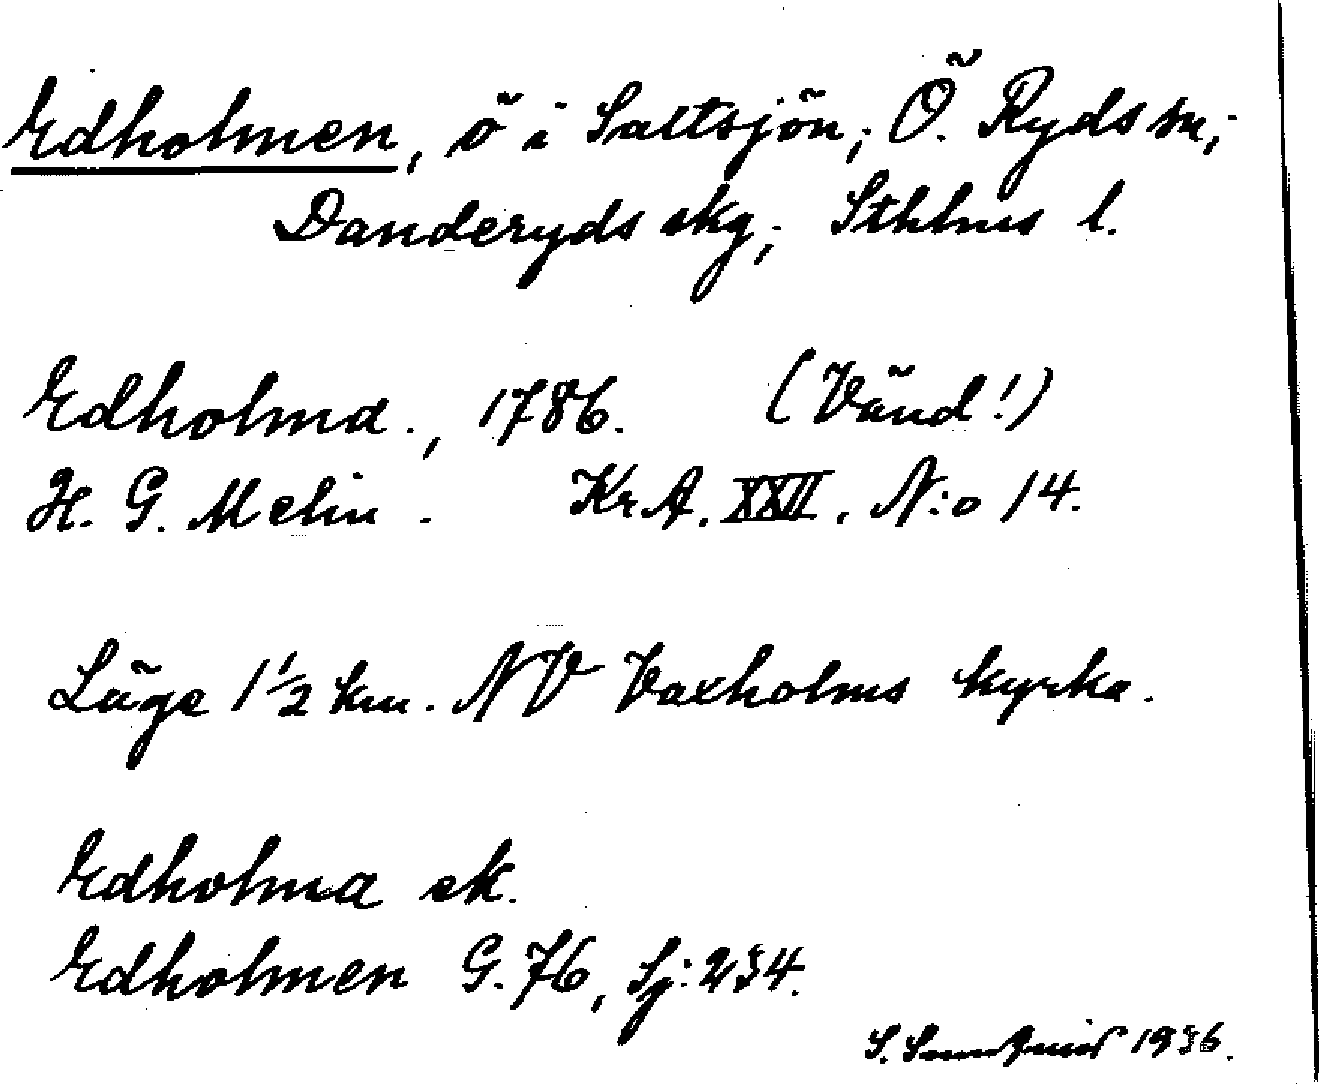 Edholmen, ö i Saltsjön; Ö. Ryds sn;
Danderyds skg; Sthlms l.
Edholma., 1786. (Vänd!)
H. G. Melin. Kr A. XXII. N:o 14.
Läge 1 1/2 km. NV Vaxholms kyrka.
Edholma ek.
Edholmen G. 76, Sj: 234.
S. 1936.